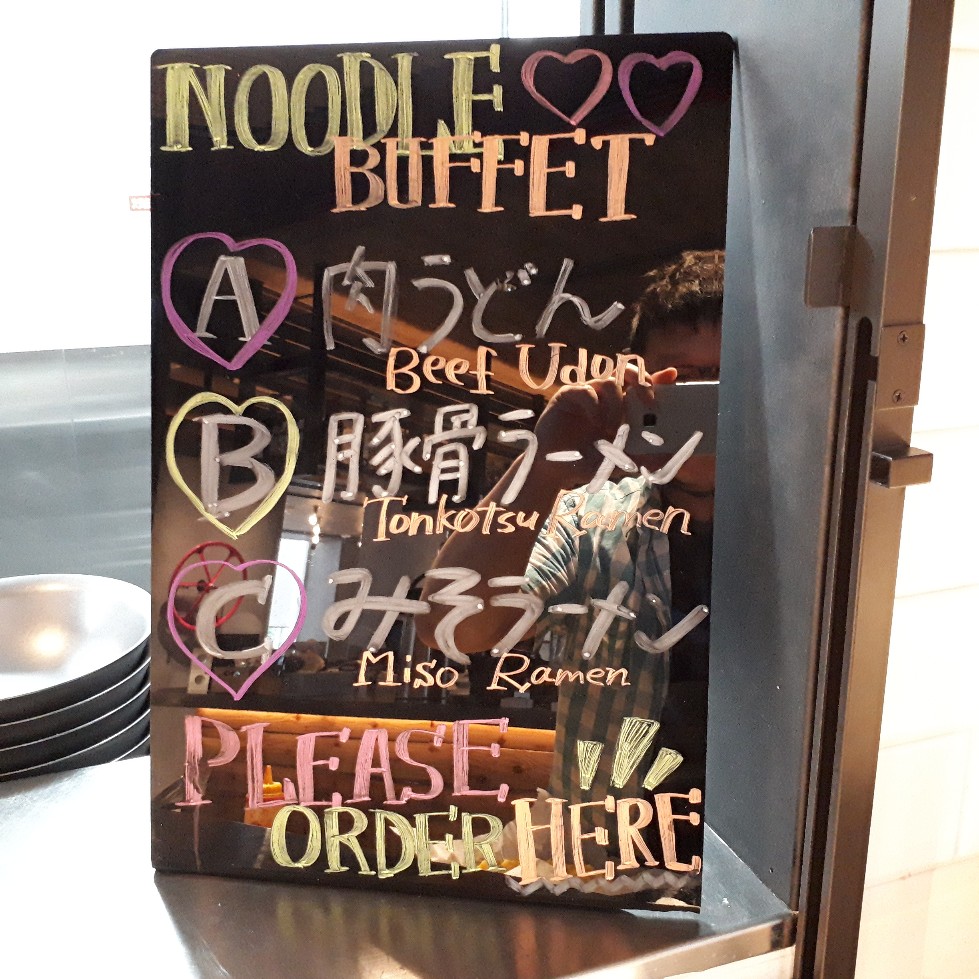 NOODLE
BUFFET
A 肉うどん
Beef Udon
B 豚骨ラーメン
Tonkotsu Ramen
C みそラーメン
Miso Ramen
PLEASE
ORDER HERE